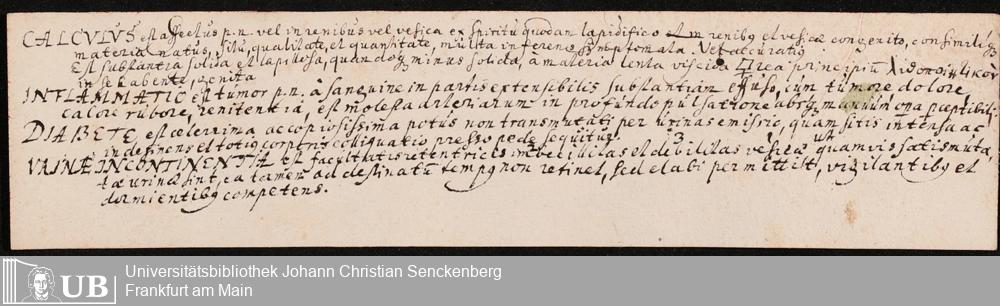 CALCVLVS est affectus p. n. vel in renibus vel vesica ex spiritu quodam lapidifico et in renibq et vesica congenito, consimiliq
materia natus, situ, qualitate, et quantitate, multa inferens symptomata. Vel accuratiq
Est substantia solida et lapidosa, quandoq minus solida, a materia lenta viscida principiũ
in se habente, genita
INFLAMMATIO est tumor p. n. a sanguine in partis extensibilis substantiam effuso, cum tumore dolore,
calore rubore, renitentia, est molesta arteriarum in profundo pulsatione absq manuum
DIABETE, est celerrima ac copiosissima potus non transmutati per urinas emissio, quam sitis intensa ac
indesinens et totiq corporis colliquatio presso pede sequitur.
VRINÆ INCONTINENTIA est facultatis retentricis imbecillitas et debilitas vesicæ quamvis satis muta,
tæ urinæ sint, ea tamen ad destinatũ tempq non retinet, sed elabi permittit, vigilantibq et
dormientibq competens.
UB
Universitätsbibliothek Johann Christian Senckenberg
Frankfurt am Main